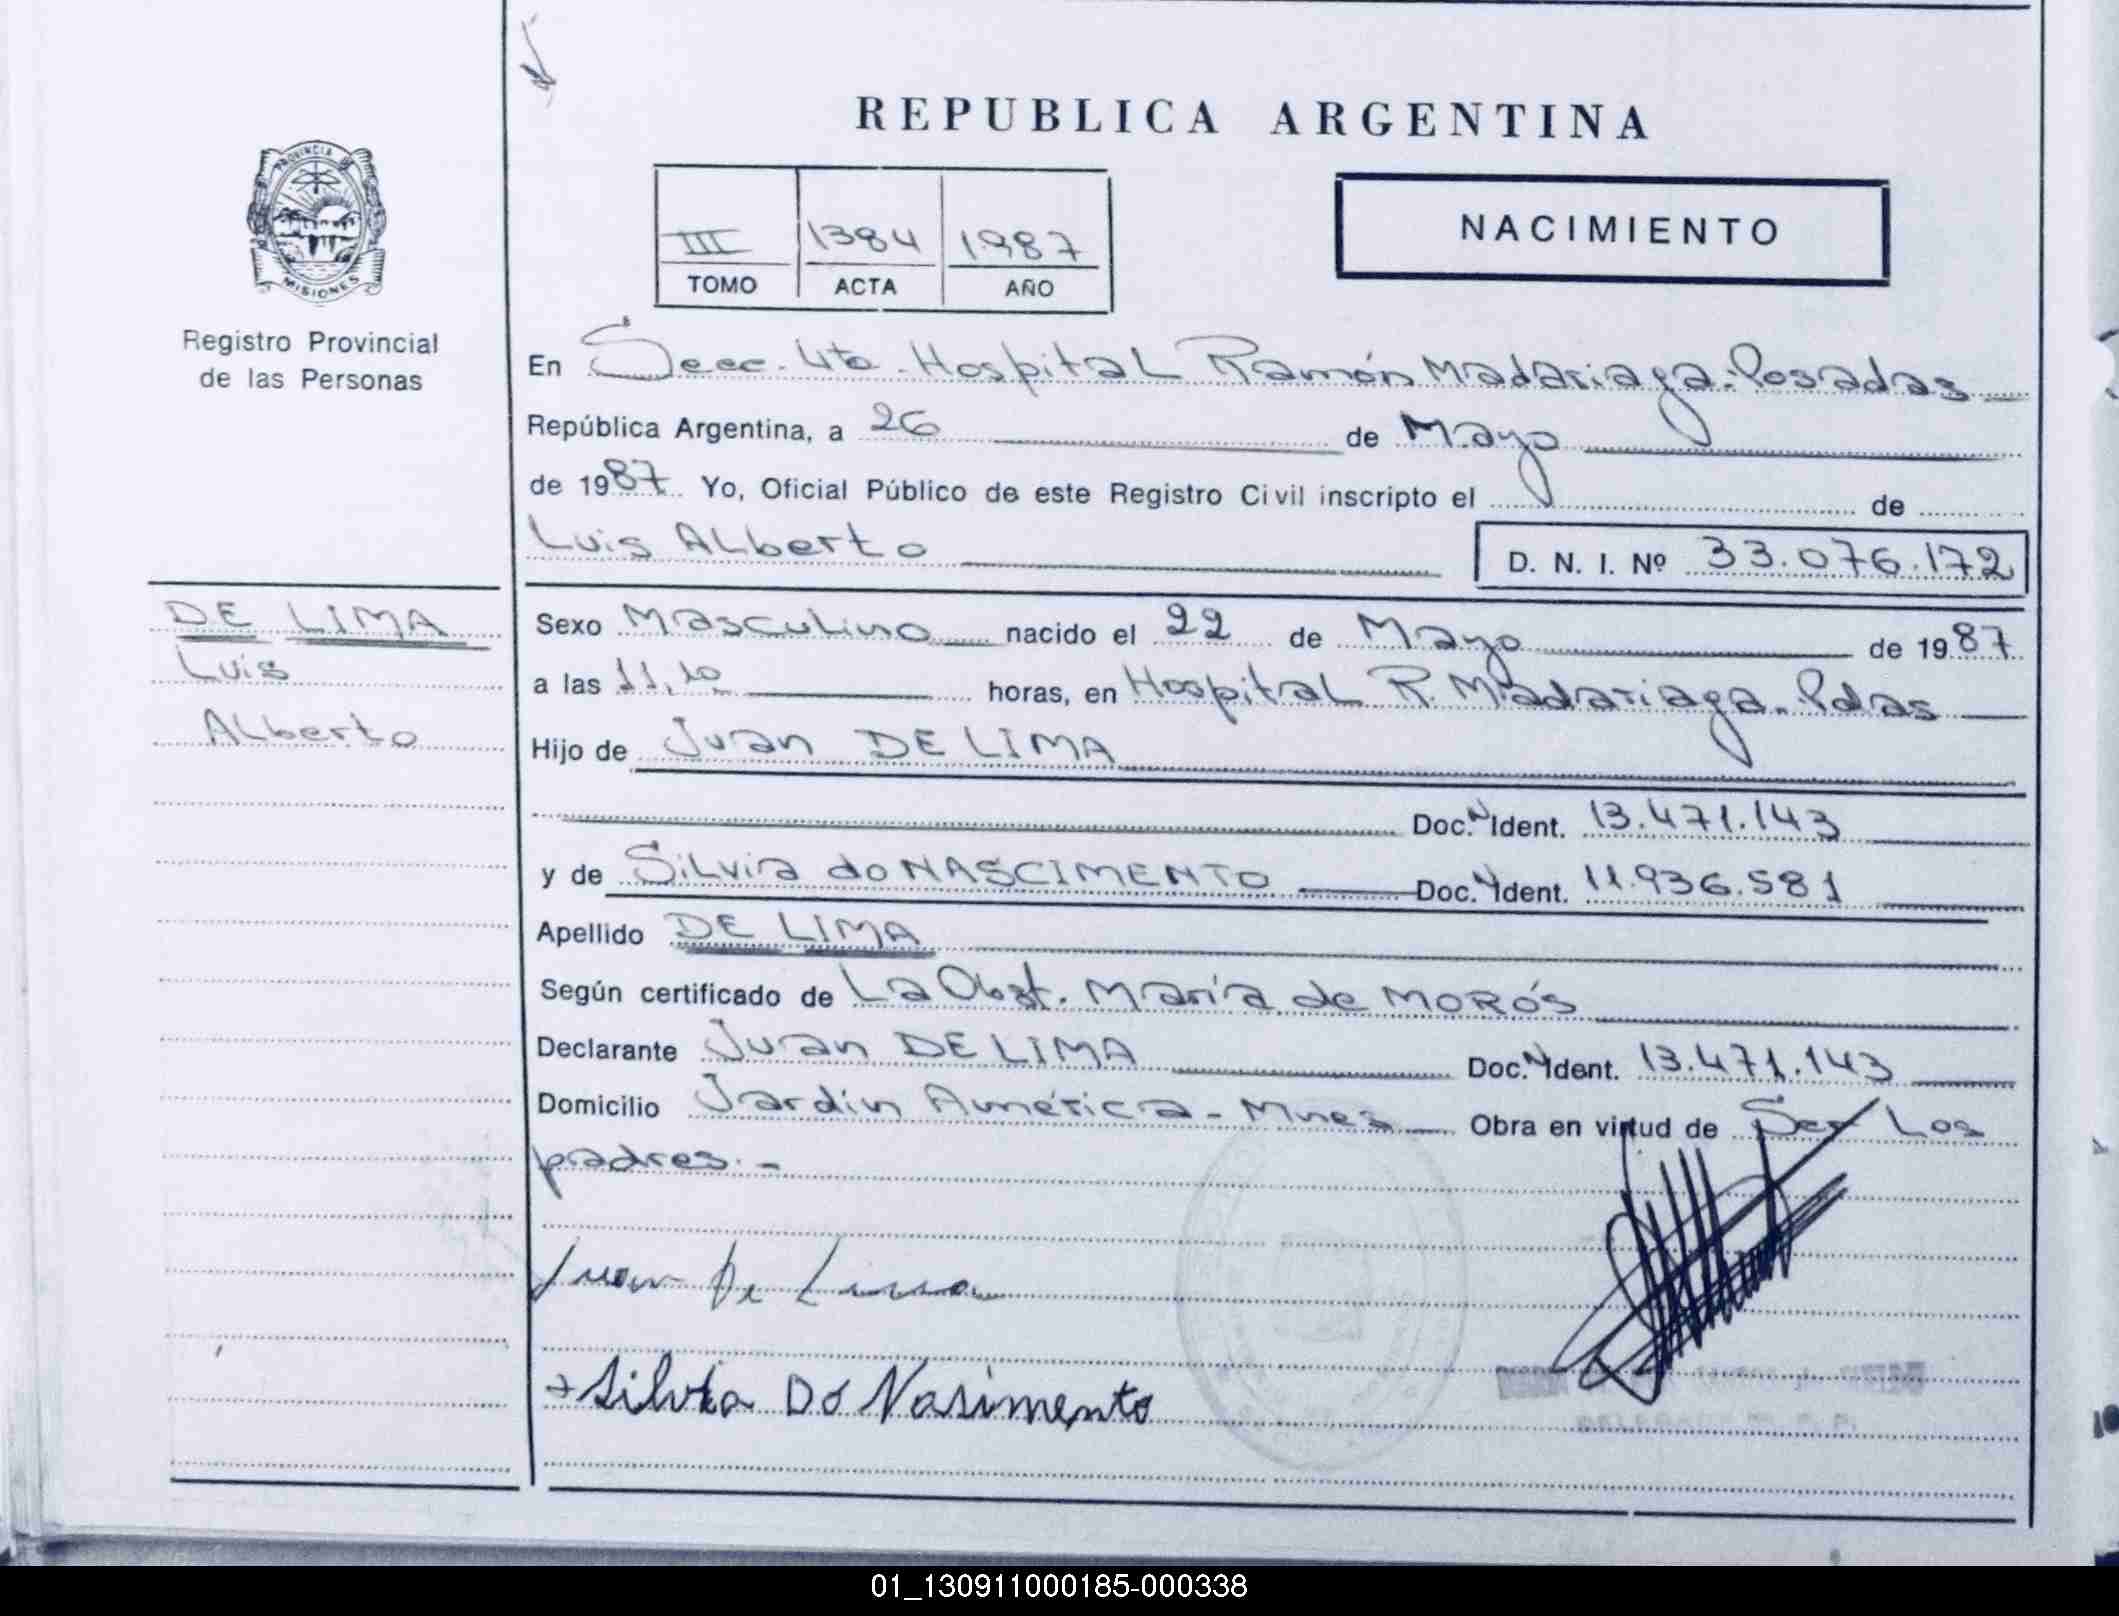 REPUBLICA ARGENTINA
PROVINCIA DE
MISIONES
Registro Provincial
de las Personas
III 1384 1987
TOMO ACTA AÑO
NACIMIENTO
En Secc. 4ta. Hospital Ramón Madariaga. Posadas
República Argentina, a 26 de Mayo
de 1987. Yo, Oficial Público de este Registro Civil inscripto el de
Luis Alberto D. N. I. Nº 33.076.172
DE LIMA
Luis
Alberto
Sexo Masculino nacido el 22 de Mayo de 1987
a las 11,10 horas, en Hospital R. Madariaga. Pdas
Hijo de Juan DE LIMA
Doc. N Ident. 13.471.143
y de Silvia do NASCIMENTO Doc. N Ident. 11.936.581
Apellido DE LIMA
Según certificado de La Obst. María de MORÓS
Declarante Juan DE LIMA Doc. N Ident. 13.471.143
Domicilio Jardín América - Mnes Obra en virtud de Ser Los
padres. -
Juan De Lima
+ Silvia Do Nasimento
01_130911000185-000338